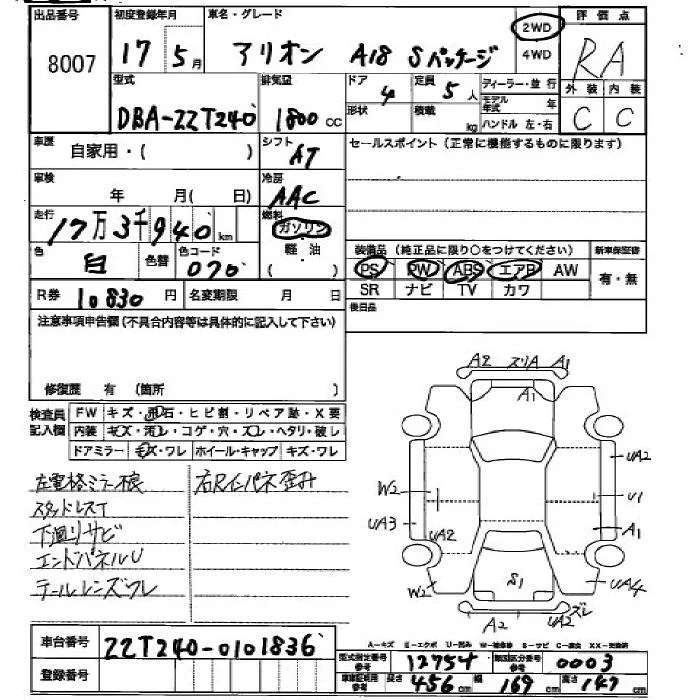 出品番号 初度登録年月 車名・グレード 評価点
8007 17年5月 アリオン A18 Sパッケージ 2WD 4WD RA
型式 排気量 ドア 定員 ディーラー・並行 外装 内装
DBA-ZZT240 1800cc 4 5人 モデル年式 年 C C
形状 積載 kg ハンドル 左・右
車歴 自家用・( ) シフト AT セールスポイント(正常に機能するものに限ります)
車検 年 月(日) 冷房 AAC
走行 17万3千940km 燃料 ガソリン
軽油
( )
色 白 色替 色コード 070 装備品(純正品に限り○をつけてください) 新車保証書
PS PW ABS エアB AW 有・無
R券 10830円 名変期限 月 日 SR ナビ TV カワ
注意事項申告欄(不具合内容等は具体的に記入して下さい) 後日品
修復歴 有 (箇所 )
検査員記入欄 FW キズ・飛石・ヒビ割・リペア跡・X要
内装 キズ・汚レ・コゲ・穴・スレ・ヘタリ・破レ
ドアミラー キズ・ワレ ホイール・キャップ キズ・ワレ
左電格ミラー不良 右Rインパネ歪み
スタッドレスT
下廻りサビ
エンドパネルU
テールレンズワレ
A2 スリA A1
A1
UA2
W2 U1
UA3 UA2 A1
W2 S1 UA4
A2 UA2 ズレ
車台番号 ZZT240-0101836
A-キズ E-エクボ U-凹み W-補修跡 S-サビ C-腐食 XX-交換済
型式指定番号参考 12754 類別区分番号参考 0003
登録番号 車庫証明用参考 長さ 456cm 幅 169cm 高さ 147cm